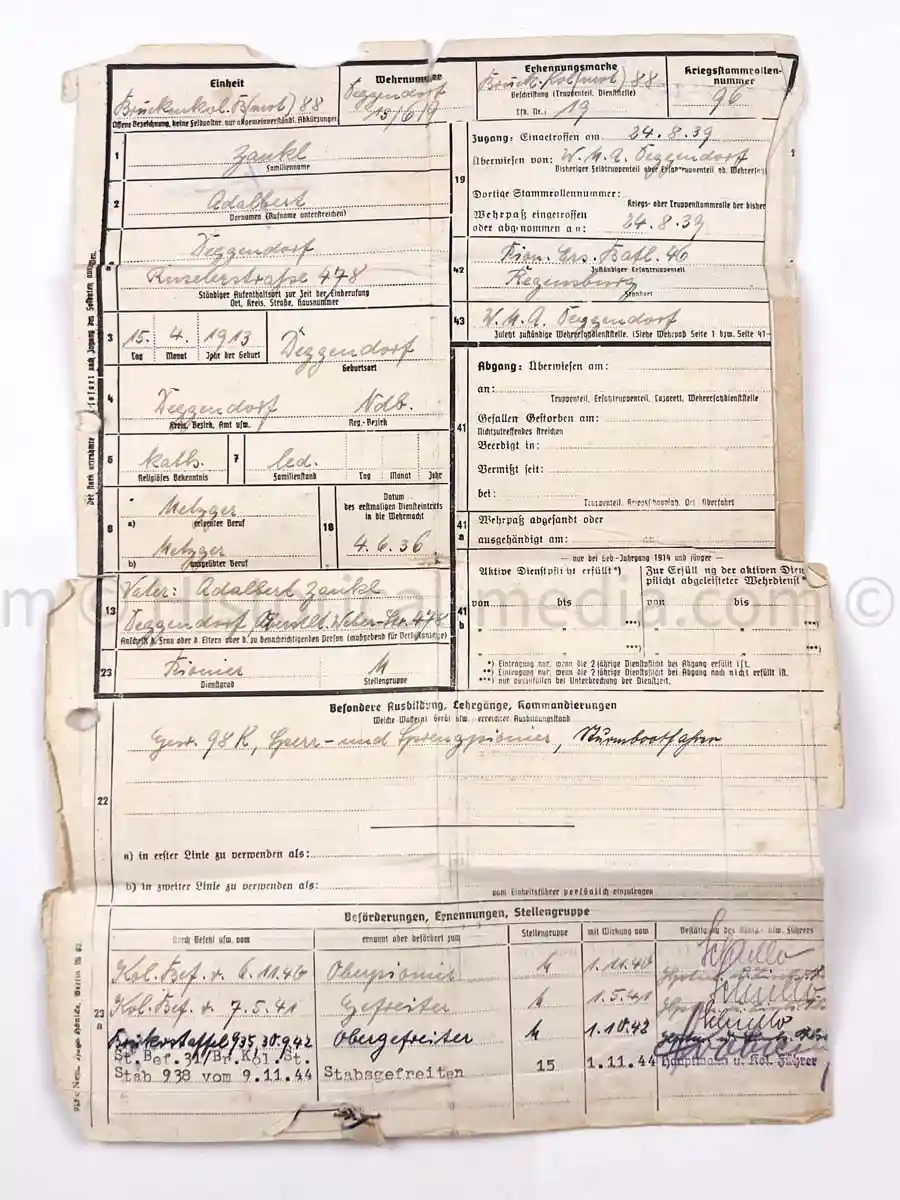 Einheit
Brückenkol. B (mot) 88
Offene Bezeichnung, keine Feldpostnr. nur allgemeinverständl. Abkürzungen
Wehrnummer
Deggendorf
13/6/9
Erkennungsmarke
Brück. Kol (mot) 88
Beschriftung (Truppenteil, Dienststelle)
Lfd. Nr.: 19
Kriegsstammrollen-
nummer
96
1
Zankl
Familienname
2
Adalbert
Vornamen (Rufname unterstreichen)
Deggendorf
Ruselerstraße 478
Ständiger Aufenthaltsort zur Zeit der Einberufung
Ort, Kreis, Straße, Hausnummer
3
15. 4. 1913
Tag Monat Jahr der Geburt
Deggendorf
Geburtsort
4
Deggendorf Ndb.
Kreis, Bezirk, Amt usw. Reg.-Bezirk
kath.
Religiöses Bekenntnis
7
led.
Familienstand
Tag Monat Jahr
Metzger
a) erlernter Beruf
Metzger
b) ausgeübter Beruf
18
Datum
des erstmaligen Diensteintritts
in die Wehrmacht
4.6.36
13
Vater: Adalbert Zankl
Deggendorf,
23
Pionier M
Dienstgrad Stellengruppe
19
Zugang: Eingetroffen am 24.8.39
Überwiesen von: W.M.A. Deggendorf
Dortige Stammrollennummer:
Kriegs- oder Truppenstammrolle der bisher
Wehrpaß eingetroffen
oder abgenommen am: 24.8.39
42
Pion. Ers. Batl. 46
Zuständiger Ersatztruppenteil
Regensburg
Standort
43
W.M.A. Deggendorf
Zuletzt zuständige Wehrersatzdienststelle. (Siehe Wehrpaß Seite 1 bzw. Seite 41
41
Abgang: Überwiesen am:
an:
Truppenteil, Ersatztruppenteil, Lazarett, Wehrersatzdienststelle
Gefallen Gestorben am:
Nichtzutreffendes streichen
Beerdigt in:
Vermißt seit:
bei:
Truppenteil, Kriegsschauplatz, Ort, Überfahrt
41
a
Wehrpaß abgesandt oder
ausgehändigt am: an
— nur bei Geb.-Jahrgang 1914 und jünger —
41
b
Aktive Dienstpflicht erfüllt*)
von bis
" " ***)
" " ***)
Zur Erfüllung der aktiven Dien
pflicht abgeleisteter Wehrdienst
von bis
" " ***)
" " ***)
*) Eintragung nur, wenn die 2jährige Dienstpflicht bei Abgang erfüllt ist.
**) Eintragung nur, wenn die 2jährige Dienstpflicht bei Abgang noch nicht erfüllt ist.
***) nur auszufüllen bei Unterbrechung der Dienstzeit.
Besondere Ausbildung, Lehrgänge, Kommandierungen
Gew. 98 K, Sperr- und Sprengpionier, Sturmbootfahrer
22
a) in erster Linie zu verwenden als:
b) in zweiter Linie zu verwenden als:
vom Einheitsführer persönlich einzutragen
Beförderungen, Ernennungen, Stellengruppe
durch Befehl usw. vom
ernannt oder befördert zum
Stellengruppe
mit Wirkung vom
23
a
Kol. Bef. v. 6.11.40 Oberpionier M 1.11.40
Kol. Bef. v. 7.5.41 Gefreiter M 1.5.41
Brükostaffel 935, 30.9.42 Obergefreiter M 1.10.42
St. Bef. 31/Br. Kol. St.
Stab 938 vom 9.11.44 Stabsgefreiten 15 1.11.44 Hauptmann u. Kol. Führer